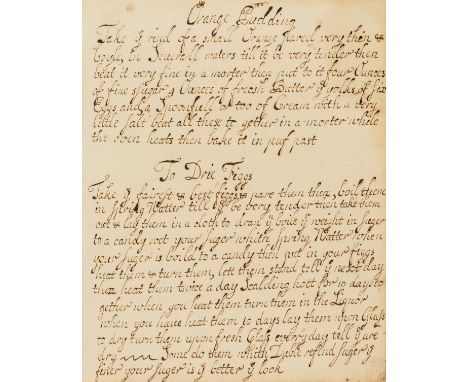 Orange Pudding
Take ye rind of a small Orange pared very then &
boyle in Severell waters till it be very tender then
beat it very fine in a morter then put to it four Ounces
of fine sugar 4 Ounces of freash Butter ye yolks of Six
Eggs and a Spoonfull or too of Cream with a very
little salt beat all these to gether in a morter while
the oven heats then bake it in puf past
To Drie Figgs
Take ye fairest & best figgs pare them then boil them
in Spring Watter till ye be very tender then take them
out & lay them in a cloth to drain ye boile ye weight in suger
to a candy wet your suger whith Spring Watter when
your suger is boild to a candy then put in your figgs
heat them & turn them, lett them stand tell ye next day
then heat them twice a day Scalding hott for 10 days to
gether when you heat them turn them in the Liquor
when you have heat them 10 days lay them upon Glass
to dry turn them upon fresh Glass every day tell ye are
dry Some do them whith Duble refind suger ye
finer your suger is ye better ye look